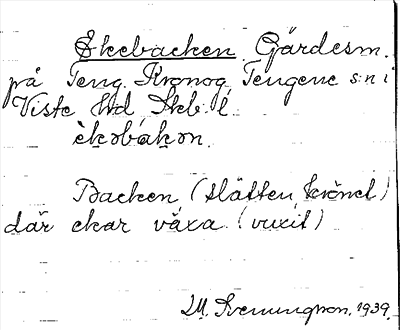 Ekebacken Gärdesm.
på Teng. Kronog. Tengene sn i
Viste Hd Skb. l.
èkəbákən.
Backen (slätten, krönet)
där ekar växa (vuxit)
M. Svenungson, 1939.